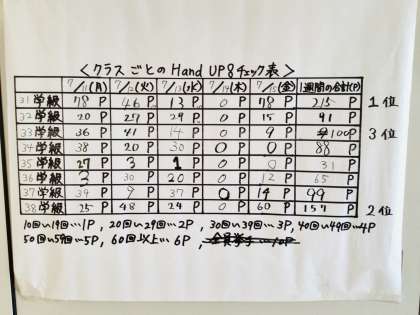 <クラスごとのHand UP8チェック表>
7/11(月) 7/12(火) 7/13(水) 7/14(木) 7/15(金) 1週間の合計(P)
31学級 78 P 46 P 13 P 0 P 78 P 215 P 1位
32学級 20 P 27 P 29 P 0 P 15 P 91 P
33学級 36 P 41 P 14 P 0 P 9 P 100P 3位
34学級 38 P 20 P 30 P 0 P 0 P 88 P
35学級 27 P 3 P 1 P 0 P 0 P 31 P
36学級 3 P 30 P 20 P 0 P 12 P 65 P
37学級 39 P 9 P 37 P 0 P 14 P 99 P
38学級 25 P 48 P 24 P 0 P 60 P 157 P 2位
10回〜19回…1P, 20回〜29回…2P, 30回〜39回…3P, 40回〜49回…4P
50回〜59回…5P, 60回以上…6P, 全員挙手…10P